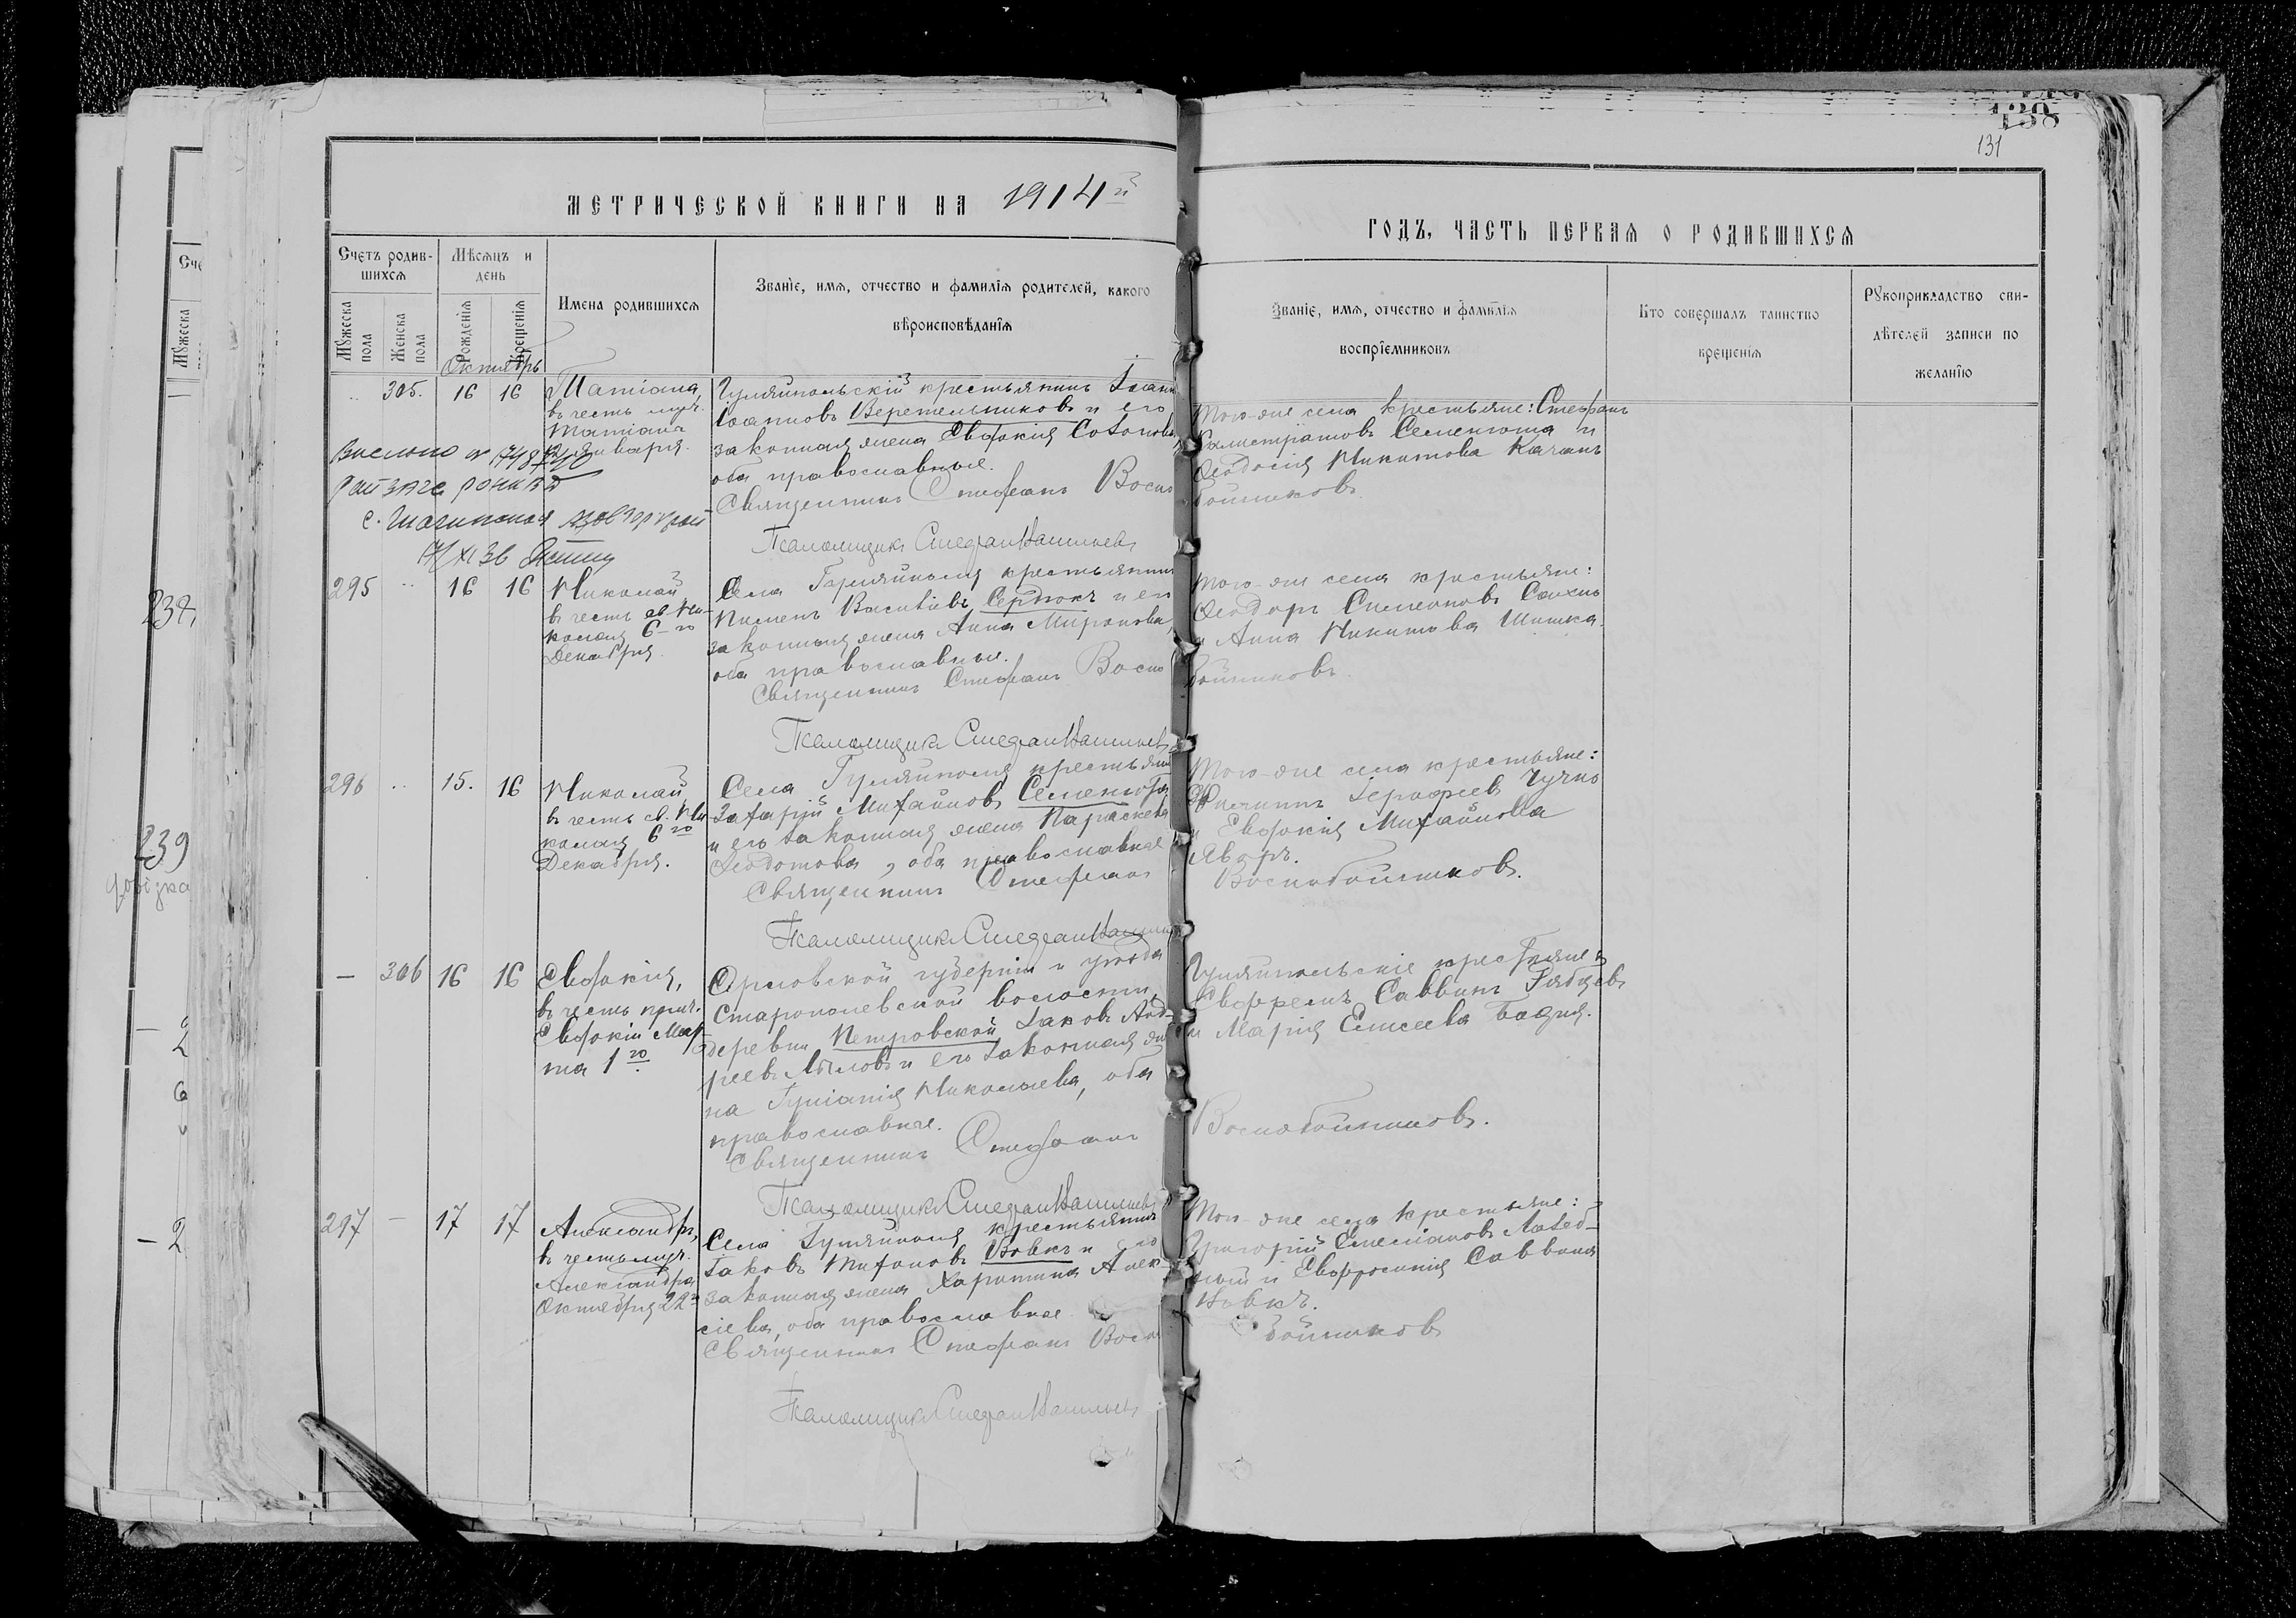 138
131
МЕТРИЧЕСКОЙ КНИГИ НА 1914й
ГОДЪ, ЧАСТЬ ПЕРВАЯ О РОДИВШИХСЯ
Счетъ родив-
шихся
Мѣсяцъ и
день
Имена родившихся
Званіе, имя, отчество и фамилія родителей, какого
вѣроисповѣданія
Мужеска
пола
Женска
пола
Рожденія
Крещенія
Званіе, имя, отчество и фамилія
воспріемниковъ
Кто совершалъ таинство
крещенія
Рукоприкладство сви-
дѣтелей записи по
желанію
Октябрь
305. 16 16
Татіана,
въ честь муч.
Татіана
12 января.
Гуляйпольскій крестьянинъ Іоаннъ
Іоанновъ Веретельниковъ и его
законная жена Евдокія Созонова,
оба православные.
Священникъ Стефанъ Воско
Псаломщикъ Стефан
Того-же села крестьяне: Стефанъ
Калистратовъ Семенюта и
Феодосія Никитова Качанъ
бойниковъ.
295 16 16
Николай
въ честь св. Ни-
колая 6-го
Декабря.
Села Гуляйполя крестьянинъ
Пименъ Василіевъ Сердюкъ и его
законная жена Анна Миронова,
оба православные.
Священникъ Стефанъ Воско
Псаломщикъ Стефан
Того-же села крестьяне:
Феодоръ Симеоновъ Сахно
и Анна Никитова Шишка.
бойниковъ.
296 15. 16
Николай
въ честь св. Ни-
колая 6го
Декабря.
Села Гуляйполя крестьянинъ
Захарій Михайловъ Семенюта
и его законная жена Параскева
Феодотова, оба православные
Священникъ Стефанъ
Псаломщикъ Стефан
Того-же села крестьяне:
Іерофеевъ Чучко
и Евдокія Михайлова
Яваръ.
Воскобойниковъ.
— 306 16 16
Евдокія,
въ честь прмч.
Евдокіи Мар-
та 1го
Орловской губерніи и уѣзда
Старопольевской волости,
деревни Петровской Іаковъ Анд-
реевъ Мыловъ и его законная же-
на Гуліанія Николаева, оба
православные.
Священникъ Стефанъ
Псаломщикъ Стефан
Гуляйпольскіе крестьяне
Евфремъ Саввинъ Рябцевъ
и Марія Елисеева Бодня.
Воскобойниковъ.
297 — 17 17
Александръ,
въ честь муч.
Александра
Октября 22го
Села Гуляйполя крестьянинъ
Іаковъ Тихоновъ Вовкъ и его
законная жена Харитина Алек-
сіева, оба православные
Священникъ Стефанъ Воско
Псаломщикъ Стефан
Того-же села крестьяне:
Григорій Емеліановъ Лазеб-
ный и Евфросинія Саввина
Вовкъ.
бойниковъ
239
2
6
— 2